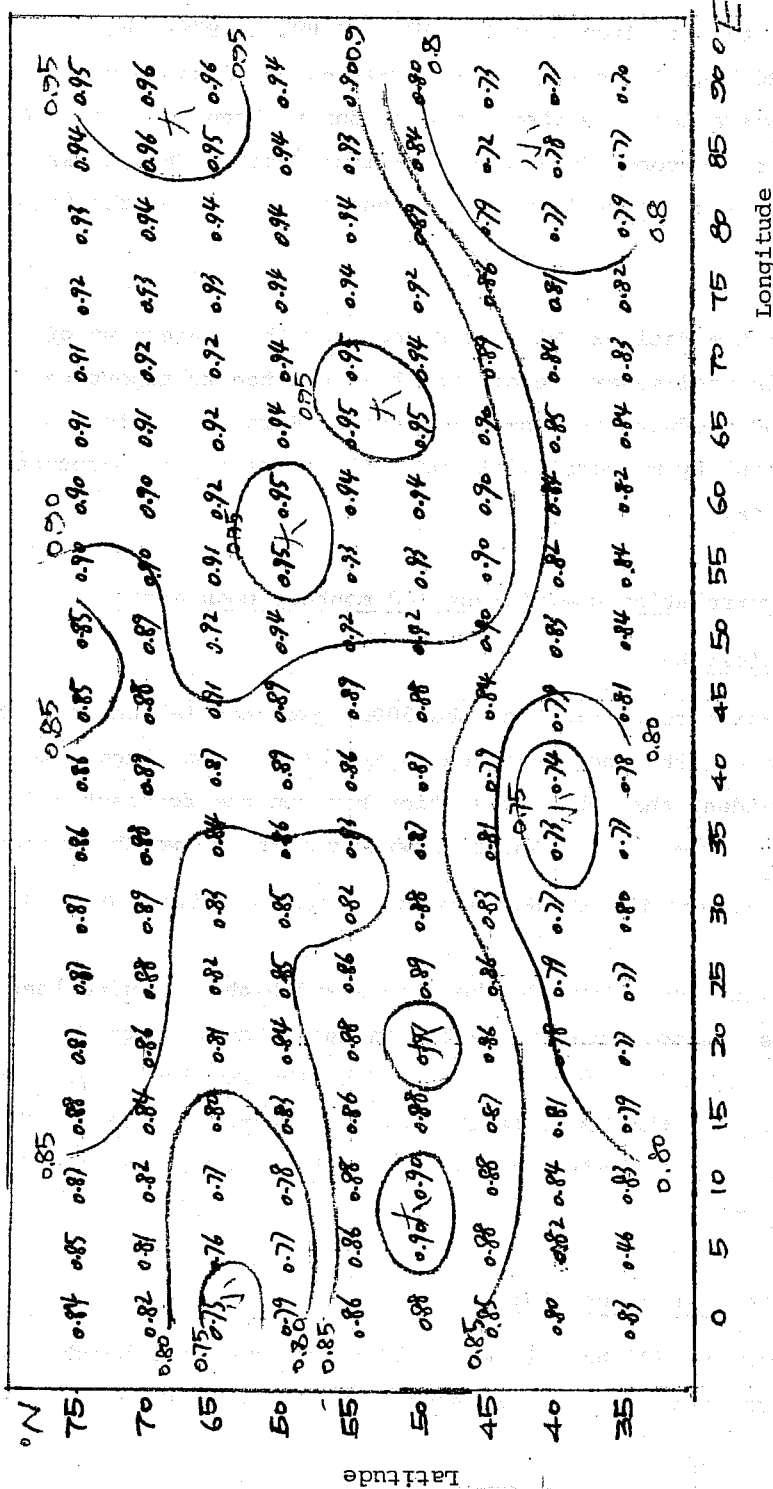 °N
0.85 0.85 0.90 0.95
75 0.84 0.85 0.87 0.88 0.87 0.87 0.87 0.86 0.86 0.85 0.85 0.90 0.90 0.91 0.91 0.92 0.93 0.94 0.95
70 0.82 0.81 0.82 0.84 0.86 0.88 0.89 0.88 0.89 0.88 0.89 0.90 0.90 0.91 0.92 0.93 0.94 0.96 0.96
0.80 大
65 0.75 0.75 0.76 0.77 0.80 0.81 0.82 0.83 0.84 0.87 0.91 0.92 0.91 0.92 0.92 0.92 0.93 0.94 0.95 0.96
小 0.95 0.95
50 0.79 0.77 0.78 0.83 0.84 0.85 0.85 0.86 0.89 0.89 0.94 0.95 大 0.95 0.94 0.94 0.94 0.94 0.94 0.94
0.80 0.95
0.85
55 0.86 0.86 0.88 0.86 0.88 0.86 0.82 0.83 0.86 0.89 0.92 0.93 0.94 0.95 0.95 0.94 0.94 0.93 0.90 0.9
大
50 0.88 0.90 大 0.90 0.88 大 0.89 0.88 0.87 0.87 0.88 0.92 0.93 0.94 0.95 0.94 0.92 0.89 0.84 0.80
0.85 0.8
45 0.85 0.88 0.88 0.87 0.86 0.86 0.83 0.81 0.79 0.84 0.90 0.90 0.90 0.90 0.89 0.86 0.79 0.72 0.73
0.75 小 小
40 0.80 0.82 0.84 0.81 0.78 0.79 0.77 0.73 0.74 0.79 0.83 0.82 0.84 0.85 0.84 0.81 0.77 0.78 0.77
35 0.83 0.46 0.83 0.79 0.77 0.77 0.80 0.77 0.78 0.81 0.84 0.84 0.82 0.84 0.83 0.82 0.79 0.77 0.70
0.80 0.80 0.8
0 5 10 15 20 25 30 35 40 45 50 55 60 65 70 75 80 85 90 °E
Latitude
Longitude